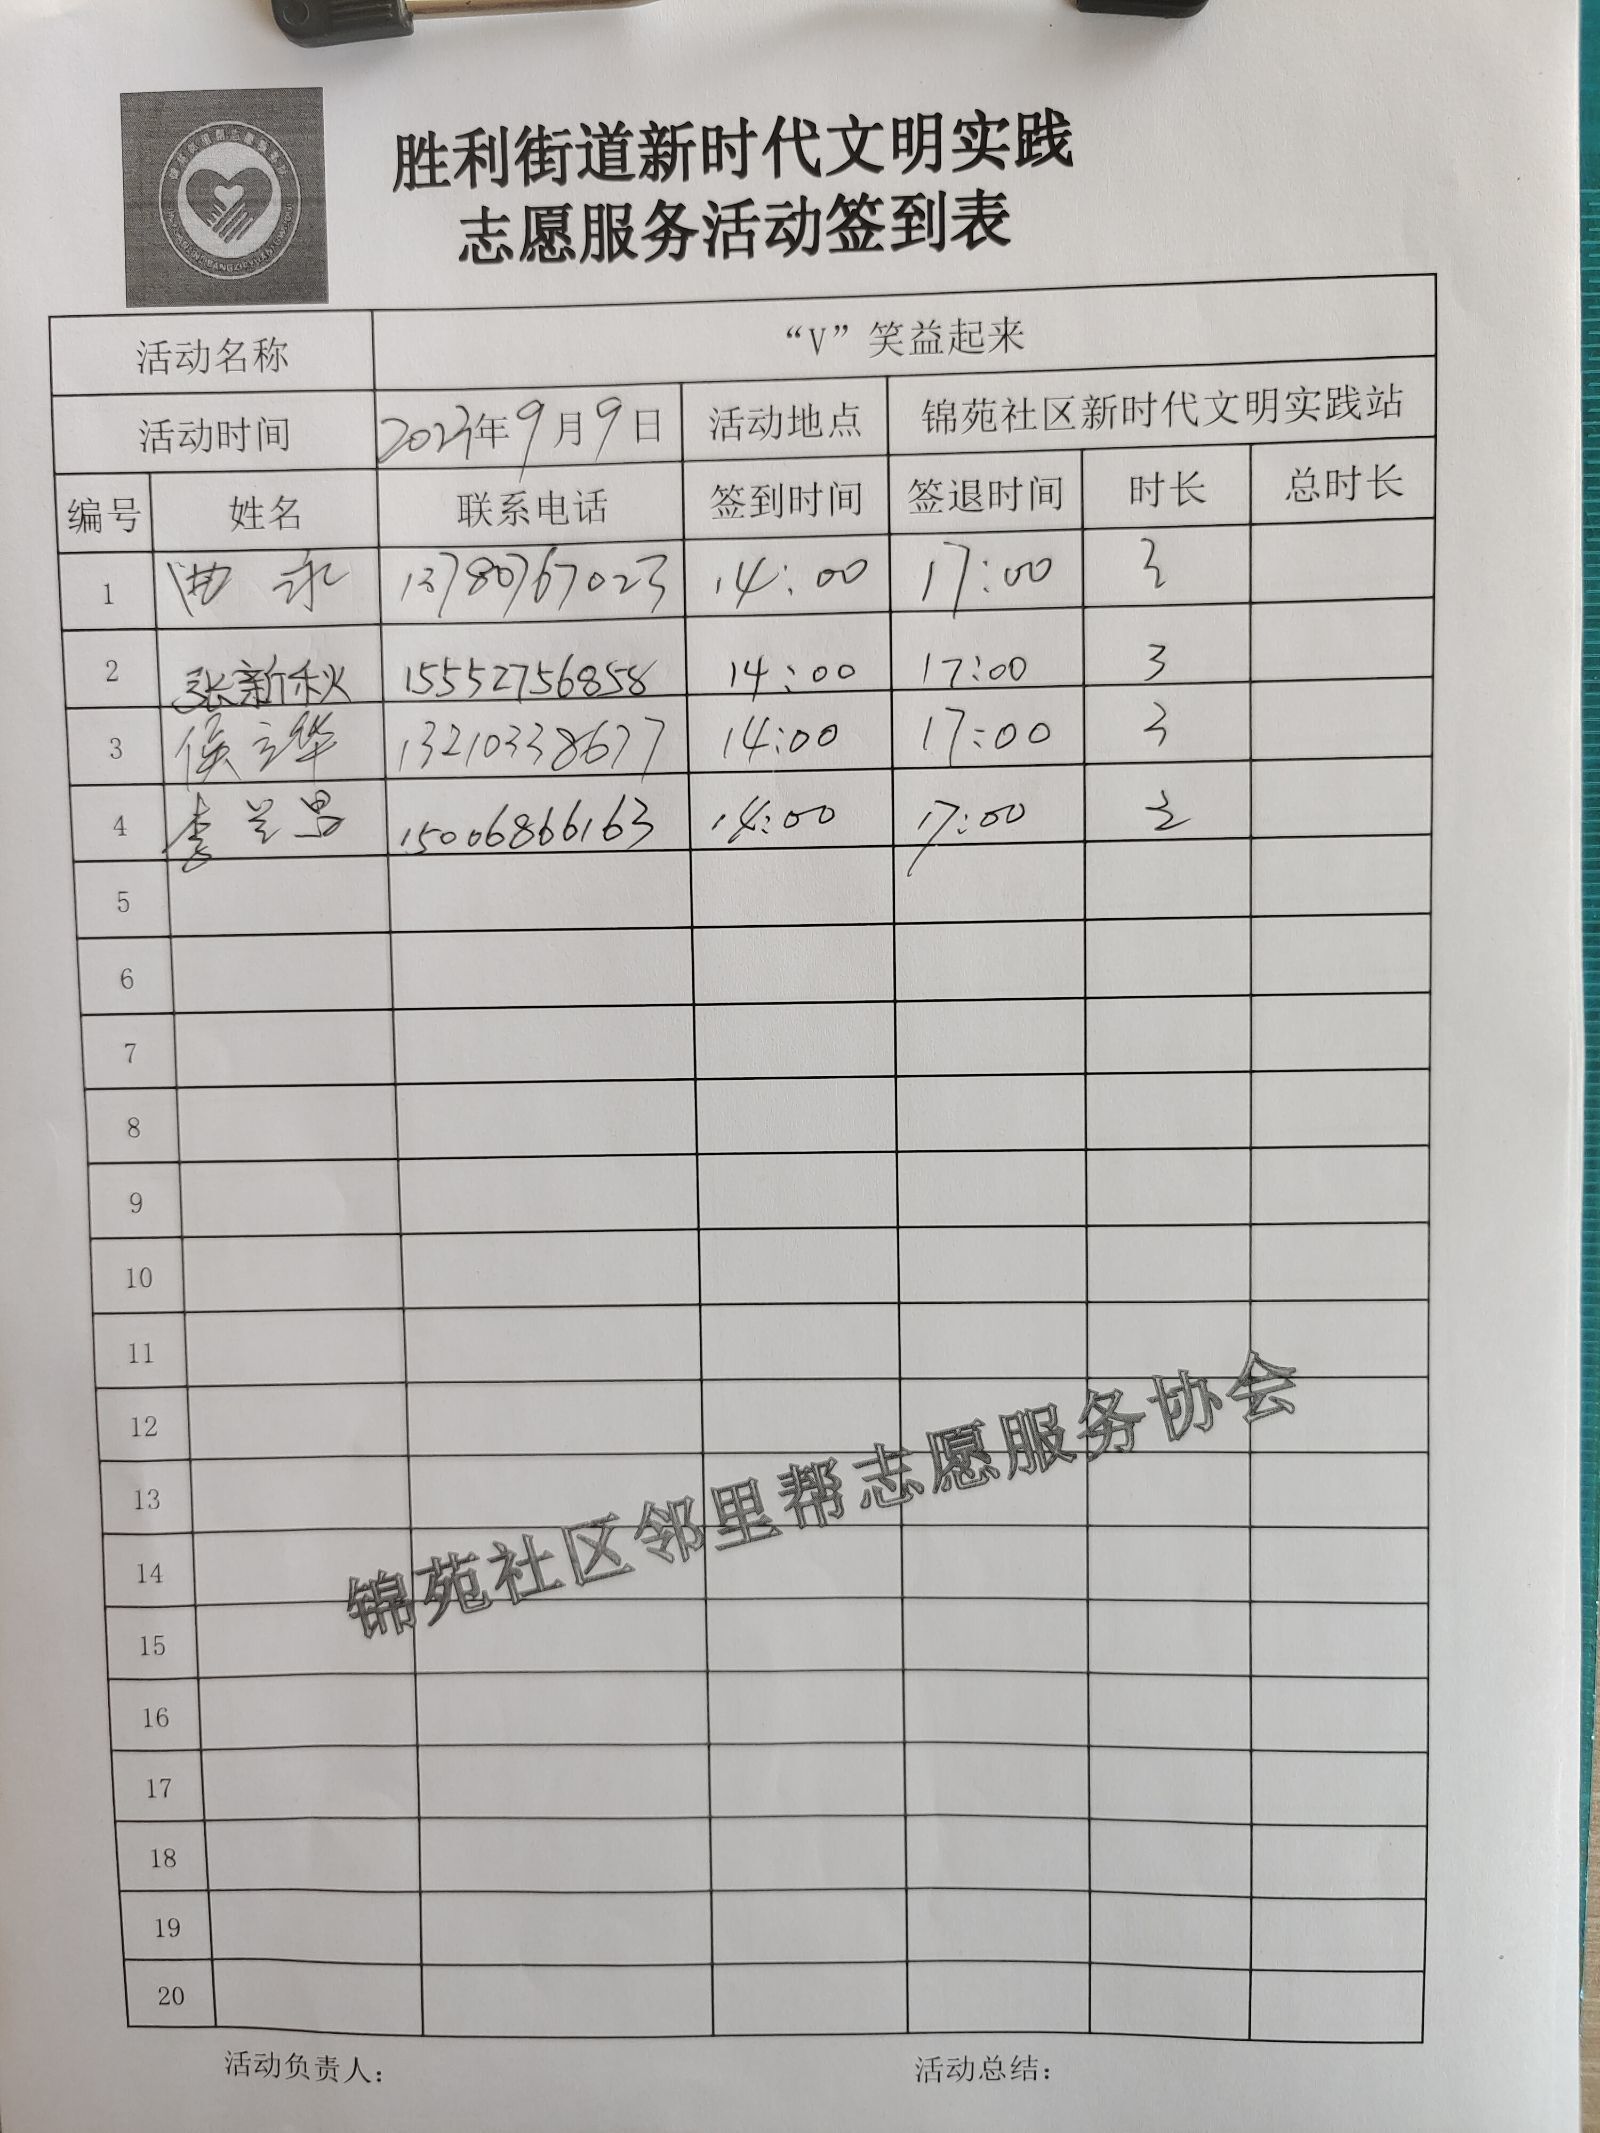 胜利街道新时代文明实践
志愿服务活动签到表
活动名称 “V”笑益起来
活动时间 2023年9月9日 活动地点 锦苑社区新时代文明实践站
编号 姓名 联系电话 签到时间 签退时间 时长 总时长
1 曲永 13780767023 14:00 17:00 3
2 张新秋 15552756858 14:00 17:00 3
3 侯立华 13210338677 14:00 17:00 3
4 李兰 15006866163 14:00 17:00 3
5
6
7
8
9
10
11
12
13
14
15
16
17
18
19
20
锦苑社区邻里帮志愿服务协会
活动负责人： 活动总结：